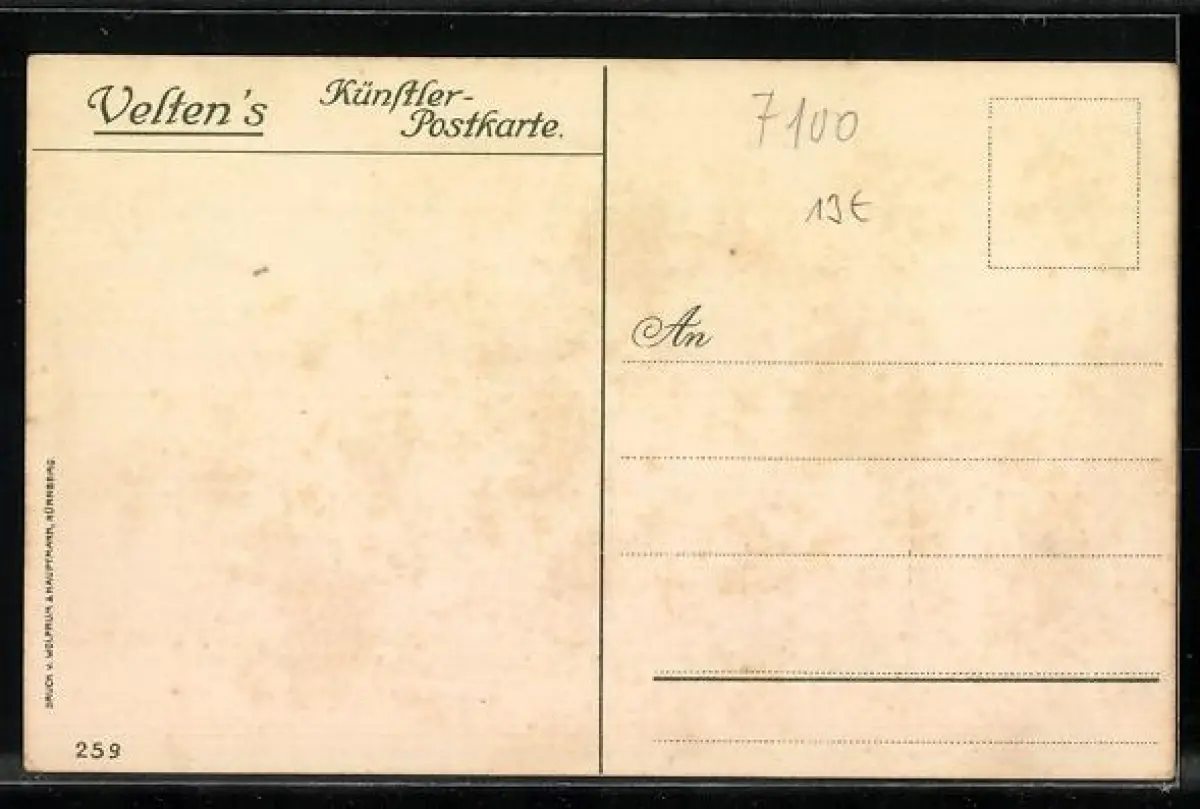 Velten's
Künstler-
Postkarte.
7100
13€
An
DRUCK v. WOLFRUM & HAUPTMANN, NÜRNBERG.
259